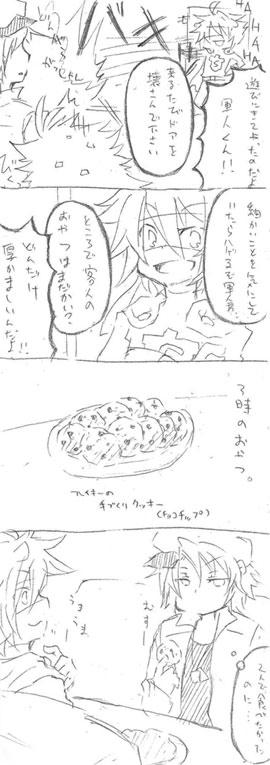 HA
HA
HA
遊びにきてやったのだよ
軍人くん!!
来るたびドアを
壊さんで下さい
細かいことを気にして
いたらハゲるぞ軍人君
ところで客人の
おやつはまだかい?
どんだけ
厚かましいんだよ!!
3時のおやつ。
フレイキーの
手づくりクッキー
(チョコチップ)
むすー
うまうま
2人で食べたかった
のに…